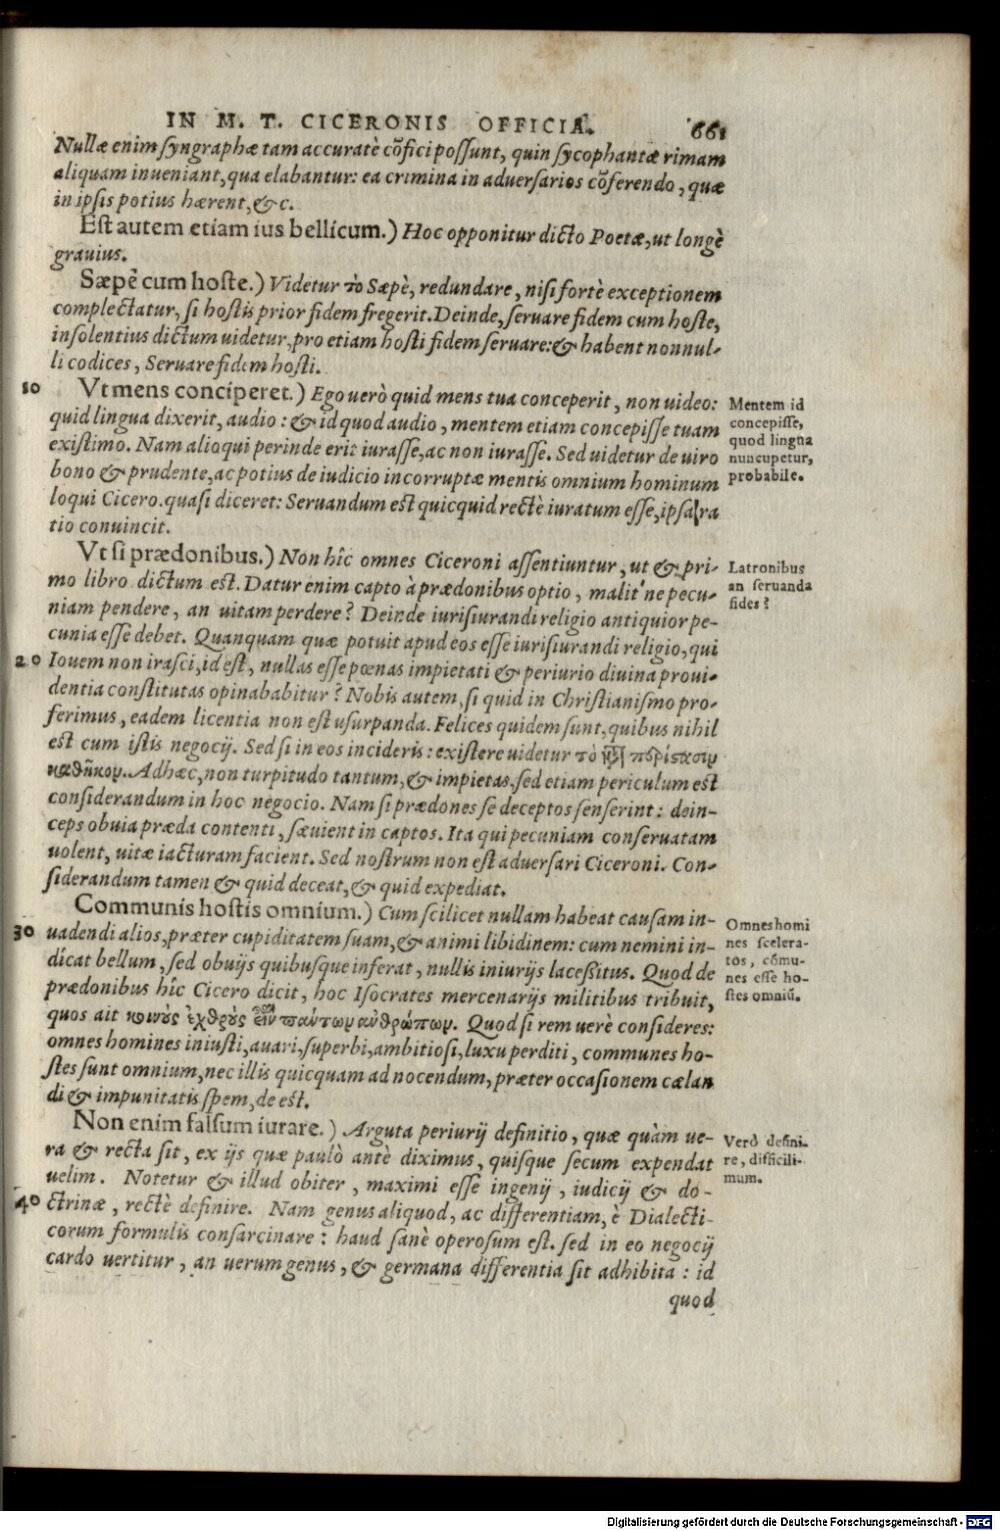 IN M. T. CICERONIS OFFICIA. 661
Nullæ enim syngraphæ tam accuratè cõfici possunt, quin sycophantæ rimam
aliquam inueniant, qua elabantur: ea crimina in aduersarios cõferendo, quæ
in ipsis potius hærent, &c.
Est autem etiam ius bellicum.) Hoc opponitur dicto Poetæ, ut longè
grauius.
Sæpè cum hoste.) Videtur τὸ Sæpè, redundare, nisi fortè exceptionem
complectatur, si hostis prior fidem fregerit. Deinde, seruare fidem cum hoste,
insolentius dictum uidetur, pro etiam hosti fidem seruare: & habent nonnul-
li codices, Seruare fidem hosti.
10 Vt mens conciperet.) Ego uerò quid mens tua conceperit, non uideo:
quid lingua dixerit, audio: & id quod audio, mentem etiam concepisse tuam
existimo. Nam alioqui perinde erit iurasse, ac non iurasse. Sed uidetur de uiro
bono & prudente, ac potius de iudicio incorruptæ mentis omnium hominum
loqui Cicero. quasi diceret: Seruandum est quicquid rectè iuratum esse, ipsa ra
tio conuincit.
Mentem id
concepisse,
quod lingua
nuncupetur,
probabile.
Vt si prædonibus.) Non hîc omnes Ciceroni assentiuntur, ut & pri-
mo libro dictum est. Datur enim capto à prædonibus optio, malit'ne pecu-
niam pendere, an uitam perdere? Deinde iurisiurandi religio antiquior pe-
cunia esse debet. Quanquam quæ potuit apud eos esse iurisiurandi religio, qui
20 Iouem non irasci, id est, nullas esse pœnas impietati & periurio diuina proui-
dentia constitutas opinababitur? Nobis autem, si quid in Christianismo pro-
ferimus, eadem licentia non est usurpanda. Felices quidem sunt, quibus nihil
est cum istis negocij. Sed si in eos incideris: existere uidetur τὸ κτ̃ περίστασιν
καθῆκον. Ad hæc, non turpitudo tantum, & impietas, sed etiam periculum est
considerandum in hoc negocio. Nam si prædones se deceptos senserint: dein-
ceps obuia præda contenti, sæuient in captos. Ita qui pecuniam conseruatam
uolent, uitæ iacturam facient. Sed nostrum non est aduersari Ciceroni. Con-
siderandum tamen & quid deceat, & quid expediat.
Latronibus
an seruanda
fides?
Communis hostis omnium.) Cum scilicet nullam habeat causam in-
30 uadendi alios, præter cupiditatem suam, & animi libidinem: cum nemini in-
dicat bellum, sed obuijs quibusque inferat, nullis iniurijs lacessitus. Quod de
prædonibus hîc Cicero dicit, hoc Isocrates mercenarijs militibus tribuit,
quos ait κοινοὺς ἐχθροὺς εἶναι πάντων ἀνθρώπων. Quod si rem uerè consideres:
omnes homines iniusti, auari, superbi, ambitiosi, luxu perditi, communes ho-
stes sunt omnium, nec illis quicquam ad nocendum, præter occasionem cælan
di & impunitatis spem, de est.
Omnes homi
nes scelera-
tos, cõmu-
nes esse ho-
stes omniũ.
Non enim falsum iurare.) Arguta periurij definitio, quæ quàm ue-
ra & recta sit, ex ijs quæ paulò antè diximus, quisque secum expendat
uelim. Notetur & illud obiter, maximi esse ingenij, iudicij & do-
40 ctrinæ, rectè definire. Nam genus aliquod, ac differentiam, è Dialecti-
corum formulis consarcinare: haud sanè operosum est. sed in eo negocij
cardo uertitur, an uerum genus, & germana differentia sit adhibita: id
quod
Verò defini-
re, difficili-
mum.
Digitalisierung gefördert durch die Deutsche Forschungsgemeinschaft - DFG